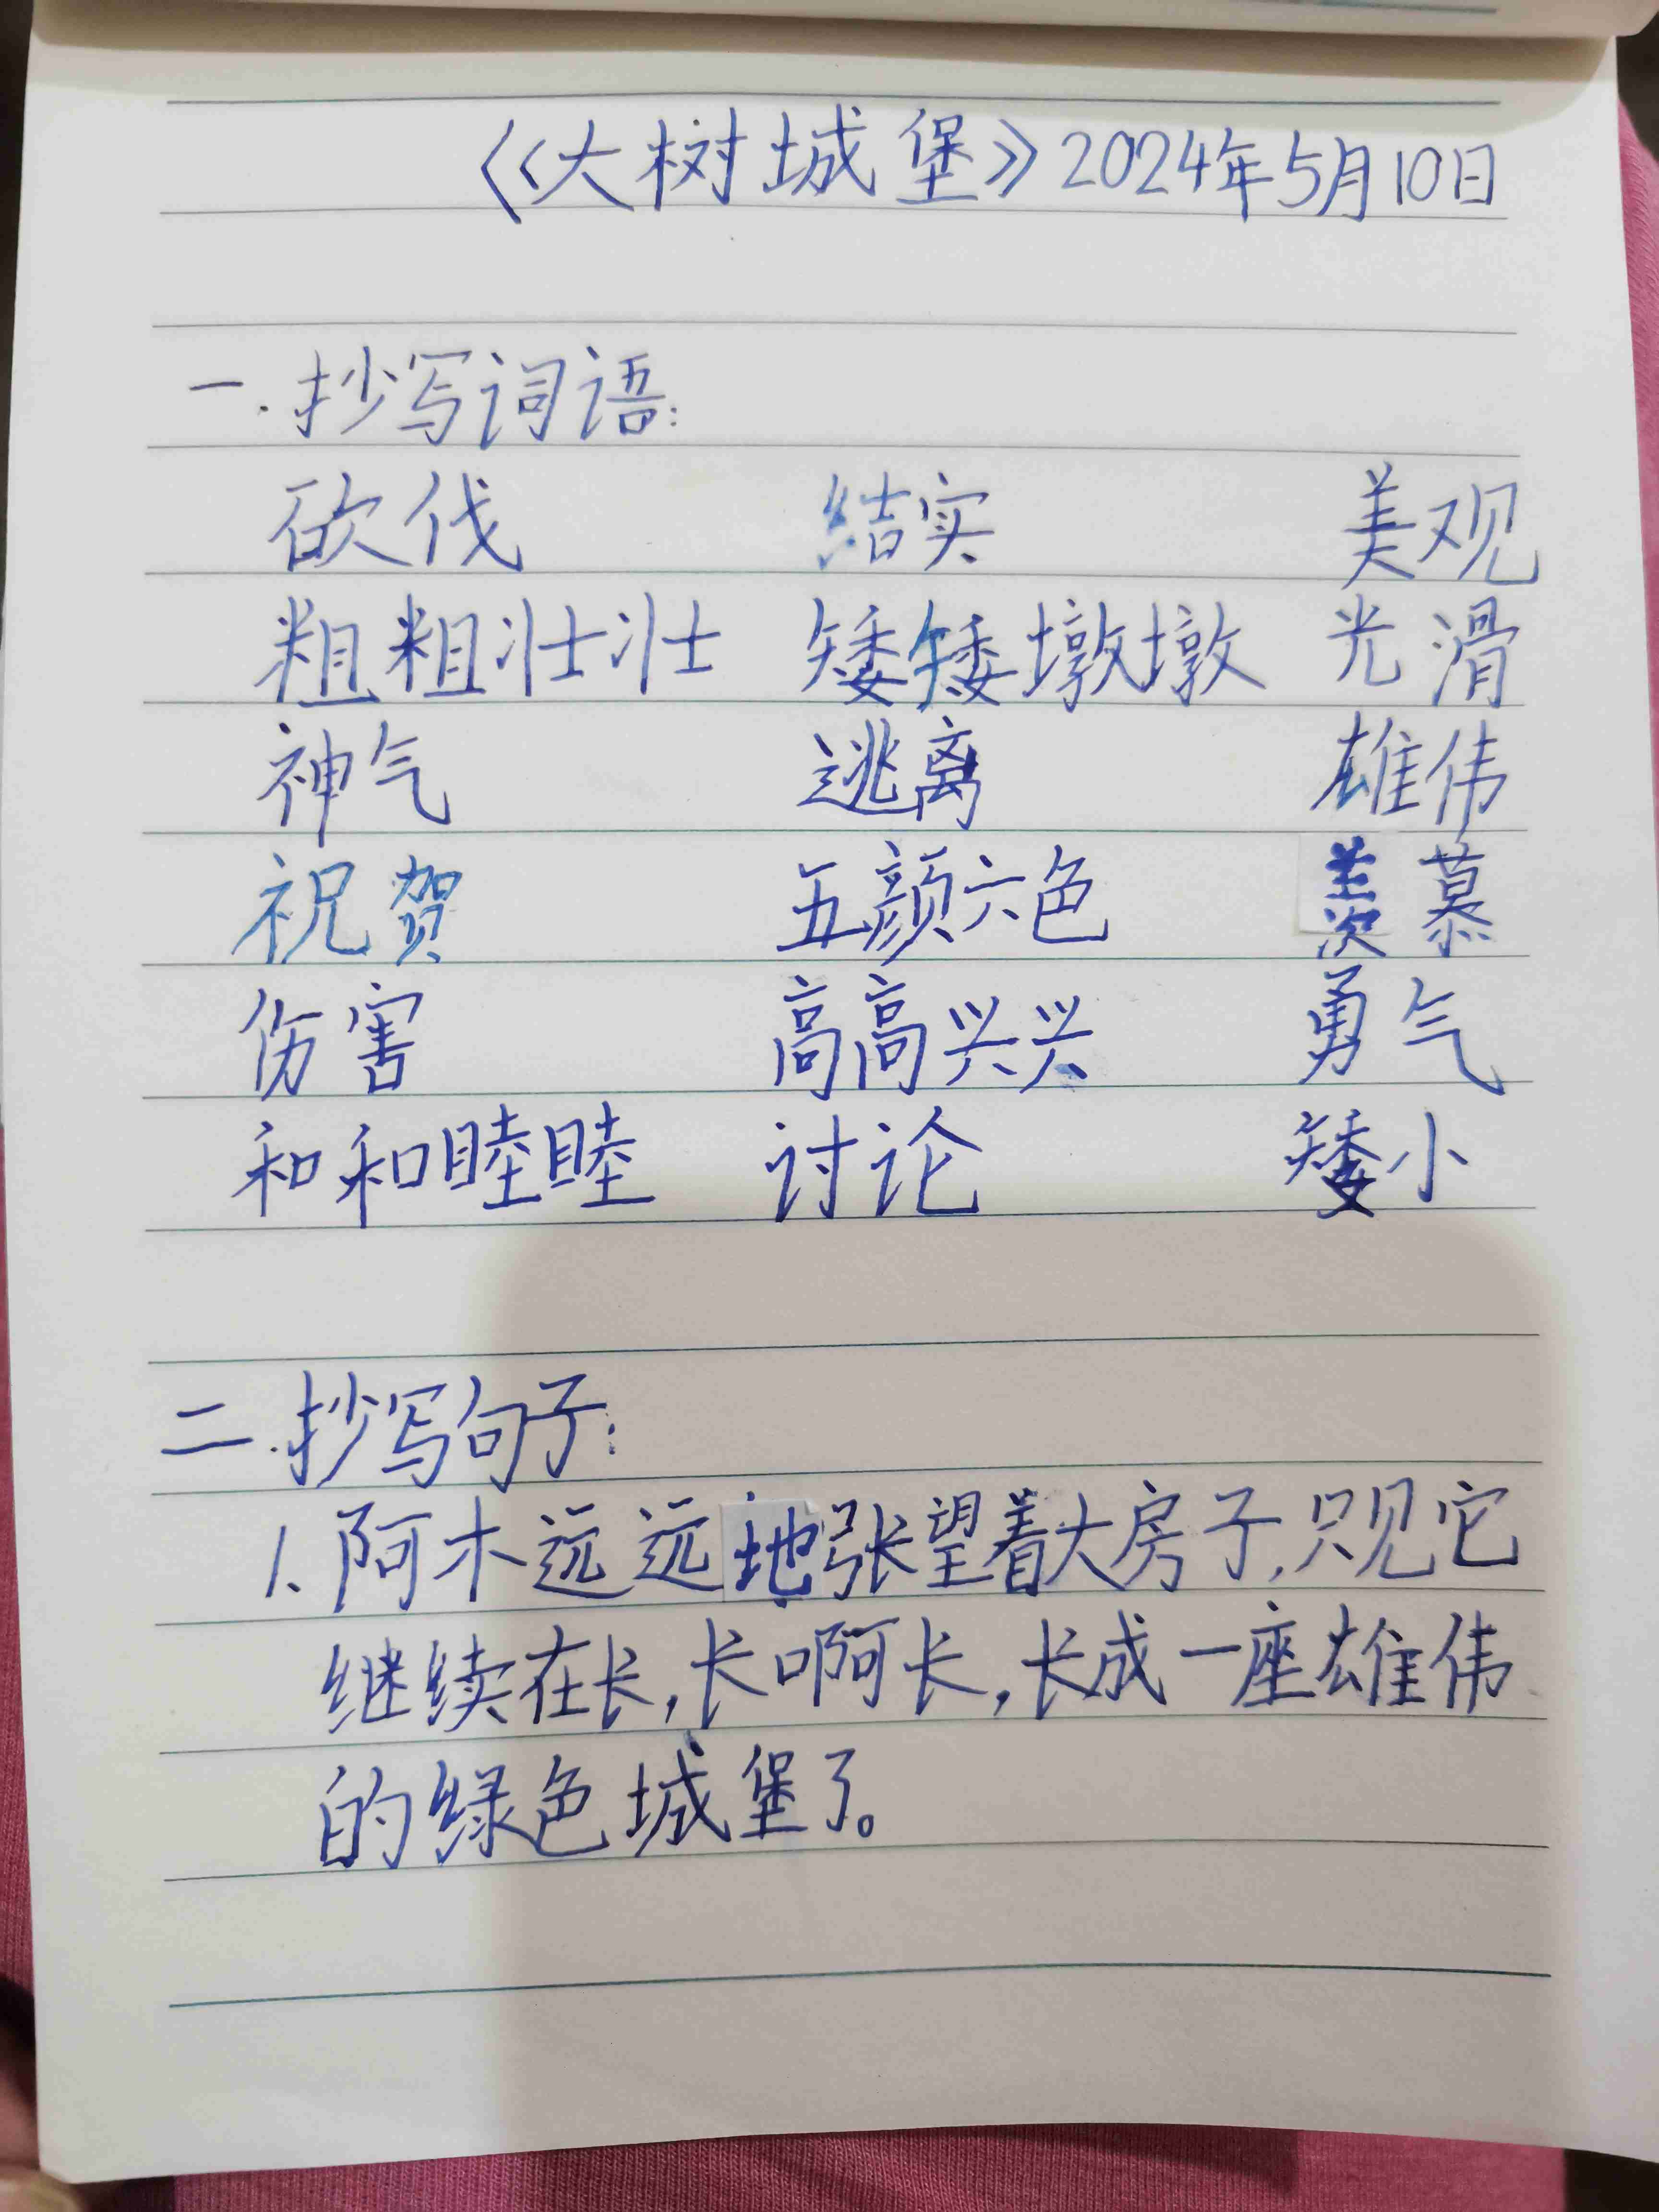 《大树城堡》2024年5月10日
一.抄写词语:
砍伐 结实 美观
粗粗壮壮 矮矮墩墩 光滑
神气 逃离 雄伟
祝贺 五颜六色 羡慕
伤害 高高兴兴 勇气
和和睦睦 讨论 矮小
二.抄写句子:
1.阿木远远地张望着大房子,只见它
继续在长,长啊长,长成一座雄伟
的绿色城堡了。